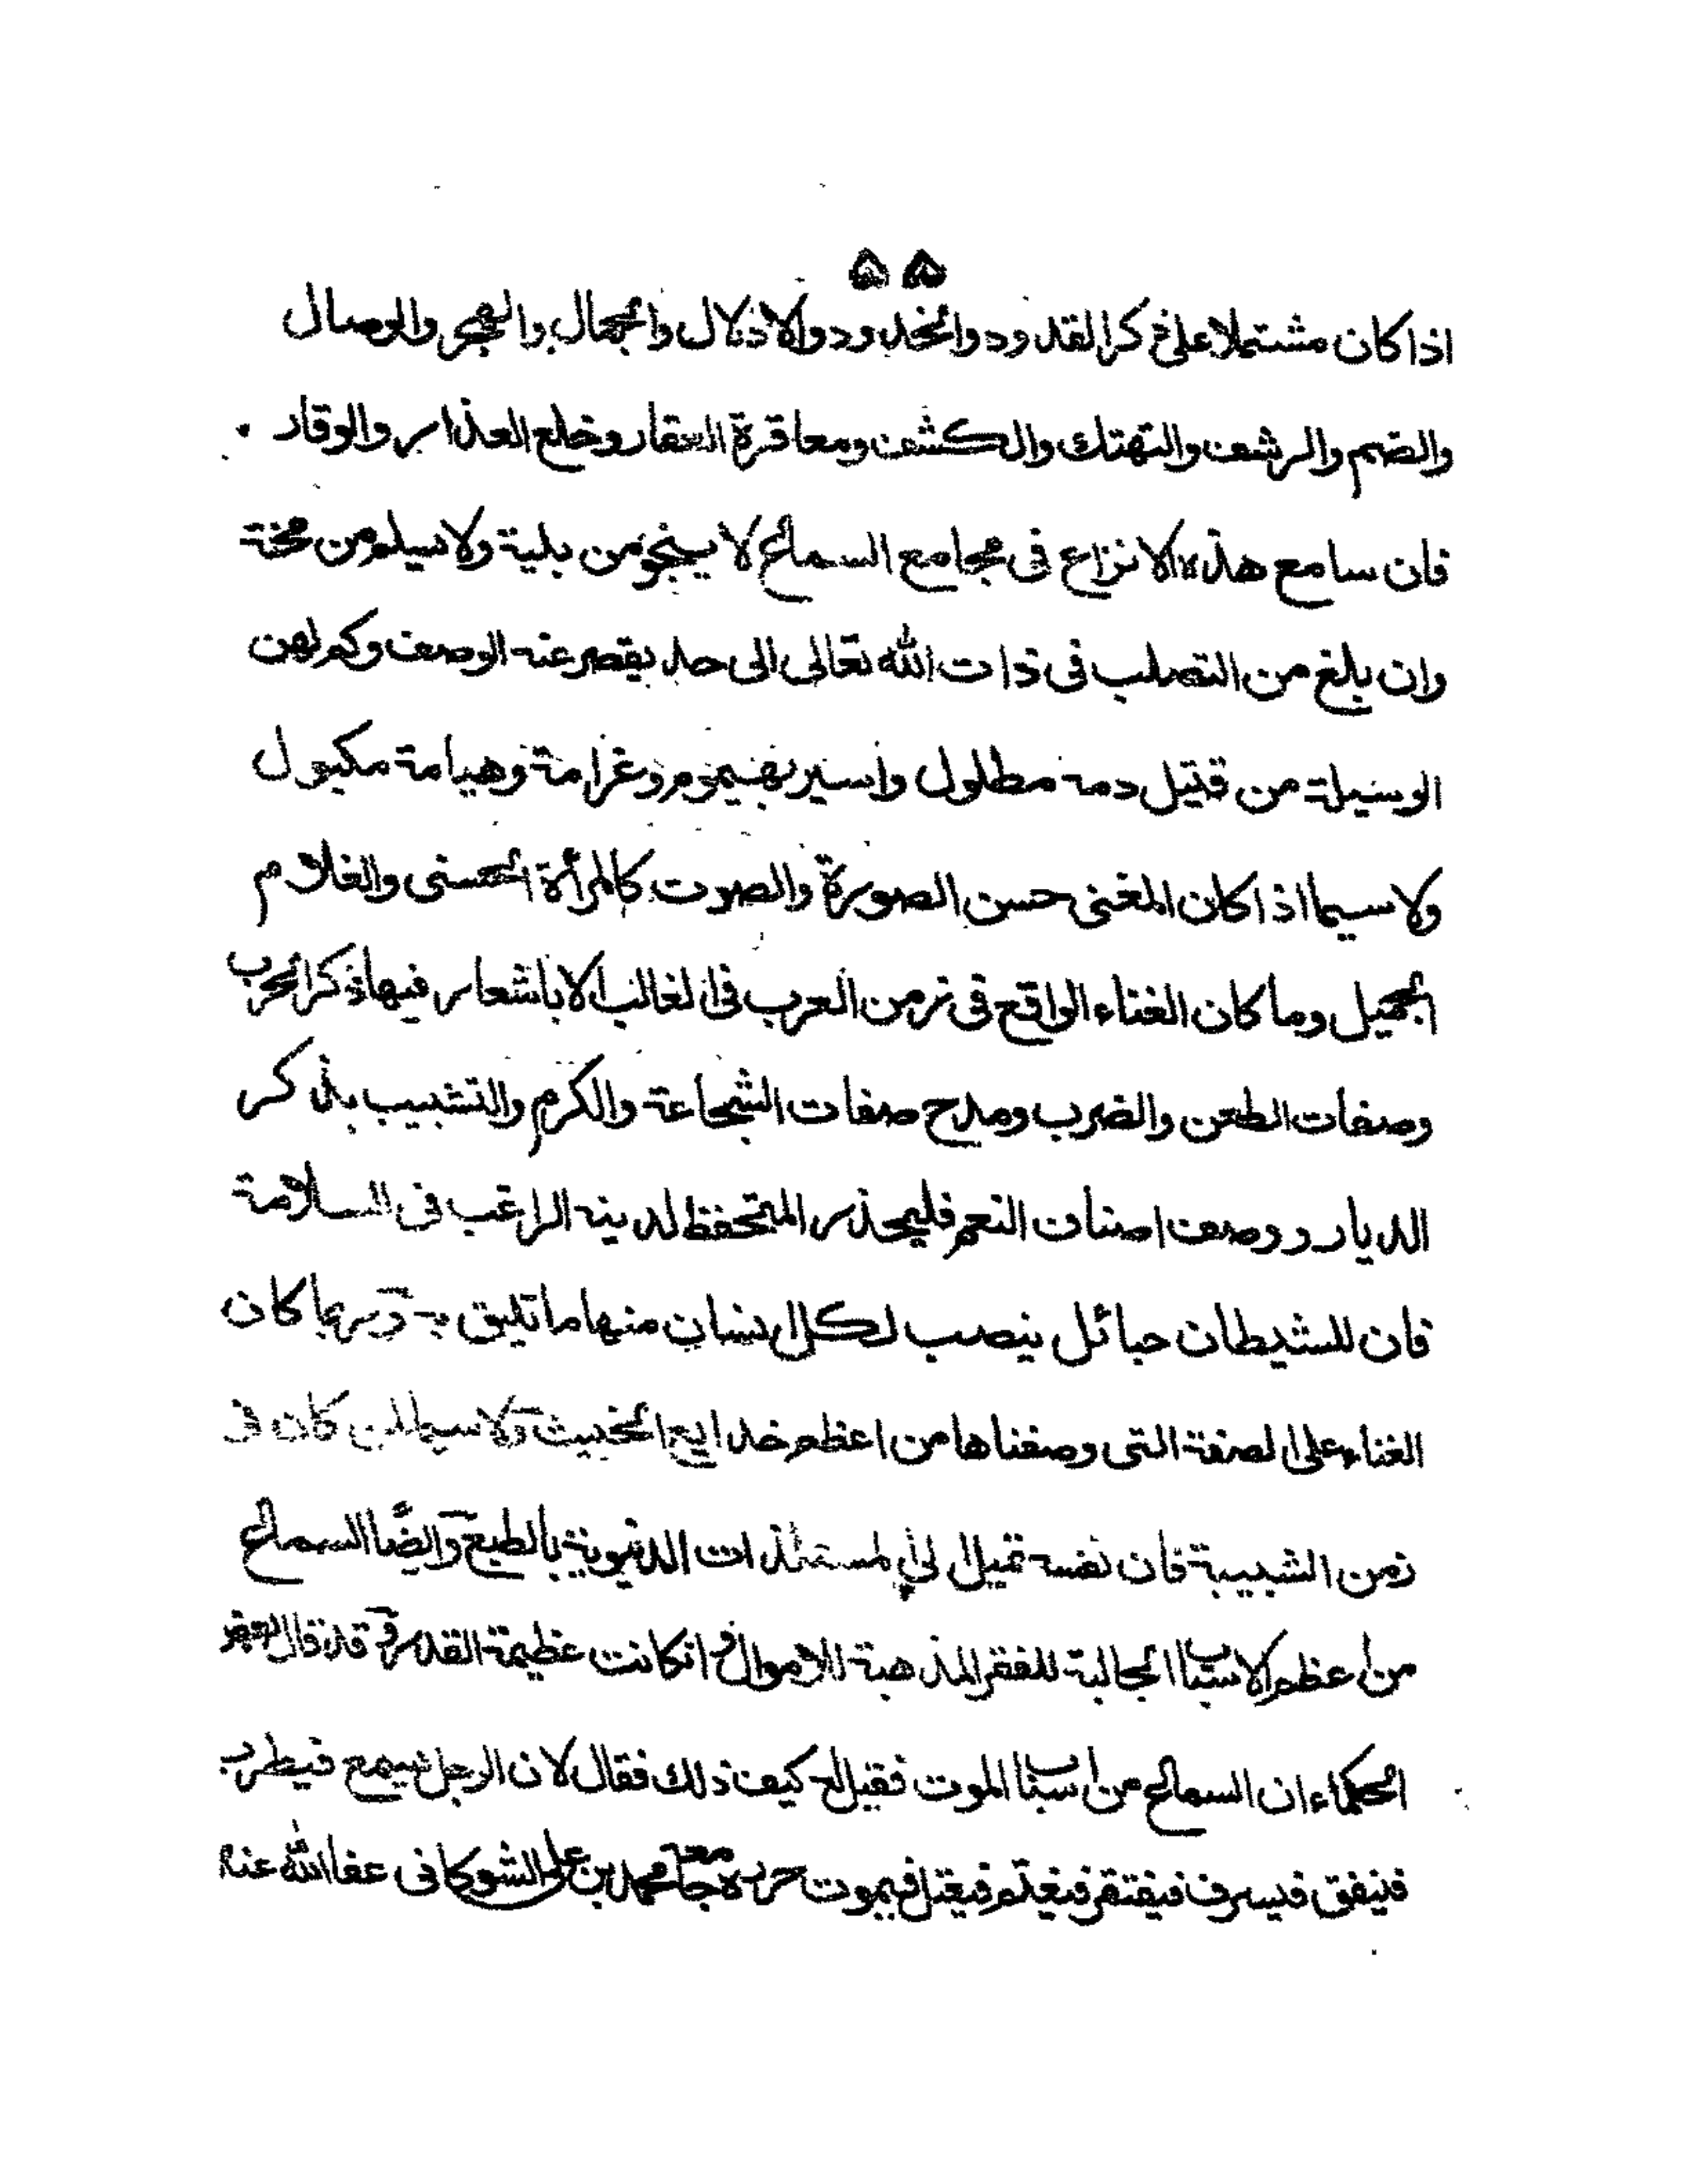 ۵۵
اذا كان مشتملا على ذكر القدود والخدود والادلال والجمال والهجر والوصال
والضم والرشف والتهتك والكشف ومعاقرة العقار وخلع العذار والوقار
فان سامع هذه الانزاع فى مجامع السماع لا ينجو من بلية ولا يسلم من محنة
وان بلغ من التصلب فى ذات الله تعالى الى حد يقصر عنه الوصف وكم لهن
الوسيلة من قتيل دمه مطلول واسير بهموم وغرامة وهيامة مكبول
ولا سيما اذا كان المغنى حسن الصورة والصوت كالمرأة الحسنى والغلام
الجميل وما كان الغناء الواقع فى زمن العرب فى الغالب الا باشعار فيها ذكر الحرب
وصفات الطعن والضرب ومدح صفات الشجاعة والكرم والتشبيب بذكر
الديار ووصف اصناف النعم فليحذر المتحفظ لدينه الراغب فى السلامة
فان للشيطان حبائل ينصب لكل انسان منها ما تليق به وربما كان
الغناء على الصفة التى وصفناها من اعظم خدايع الخبيث ولا سيما لمن كان فى
زمن الشبيبة فان نفسه تميل الى المستلذات الدنيوية بالطبع وايضًا السماع
من اعظم الاسباب الجالبة للفقر المذهبة للاموال وانكانت عظيمة القدر وقد قال بعض
الحكماء ان السماع من اسباب الموت فقيل له كيف ذلك فقال لان الرجل يسمع فيطرب
فينفق فيسرف فيفتقر فيغتم فيعتل فيموت حرره جامعه محمد بن على الشوكانى عفا الله عنه